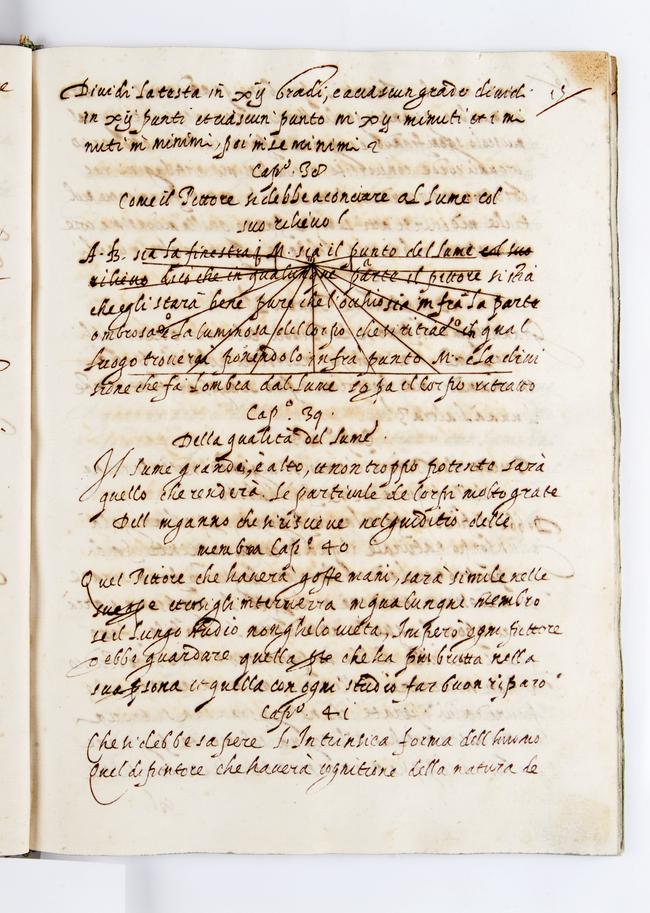 Dividi la testa in xij Gradi, e ciascun grado dividi
13
in xij punti et ciascun punto in xij minuti et i mi
nuti in minimi, poi in se minimi
Cap.º 38
Come il Pittore si debbe aconciare al lume col
suo rilievo
A. B. sia la finestra M. sia il punto del lume col suo
rilievo dico che in qualunque parte il pittore si stia
che egli starà bene pure che l'occhio sia infra la parte
ombrosa et la luminosa del corpo che si ritrae qual
luogo troverai ponendolo infra punto M. e la divi
sione che fa l'ombra dal lume sopra il corpo ritratto
Cap.º 39.
Della qualità del lume.
Il lume grande, e alto, et non troppo potente sarà
quello che renderà le particule de corpi molto grate
Dell inganno che si riceve nel giuditio delle
membra Cap.º 40
Quel Pittore che haverà goffe mani, sarà simile nelle
sue ope et cosi gli interverra in qualunque membro
se il lungo studio non ghelo vieta, Imperò ogni pittore
debbe guardare quella pte che ha piu brutta nella
sua psona et quella con ogni studio far buon riparo
Cap.º 41
Che si debbe sapere l'Intrinsica forma dell huomo
Quel dipintore che haverà cognitione della natura de